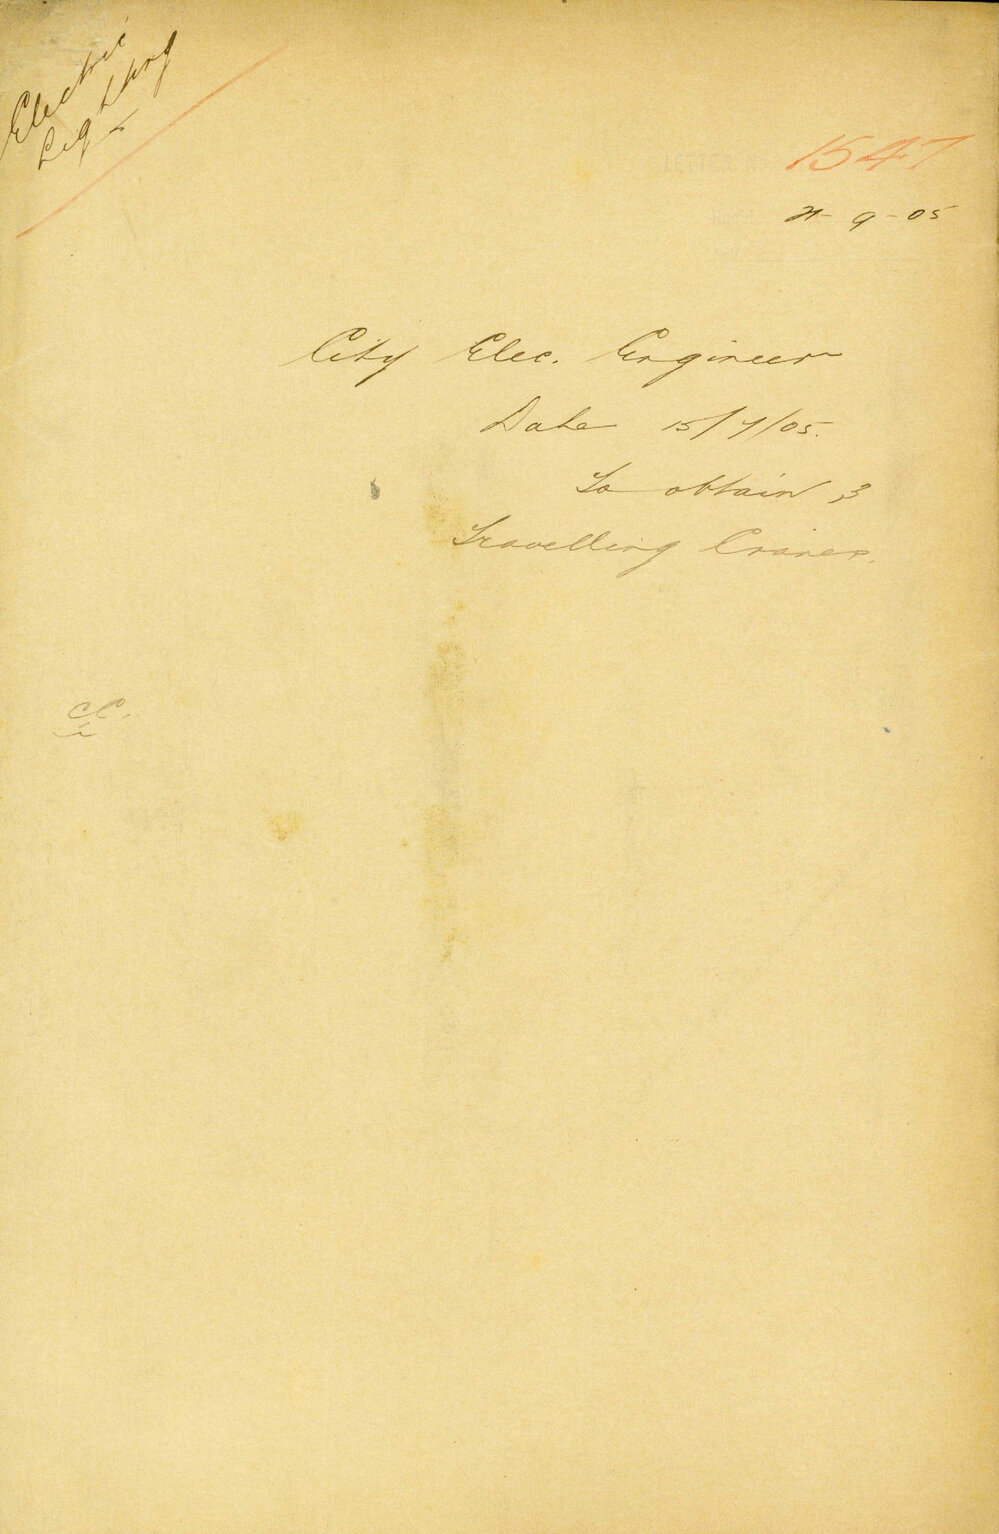 Electric
Lighting
1547
21-9-05
City Elec. Engineer
Date 15/9/05.
To obtain 3
Travelling Cranes.
CC.